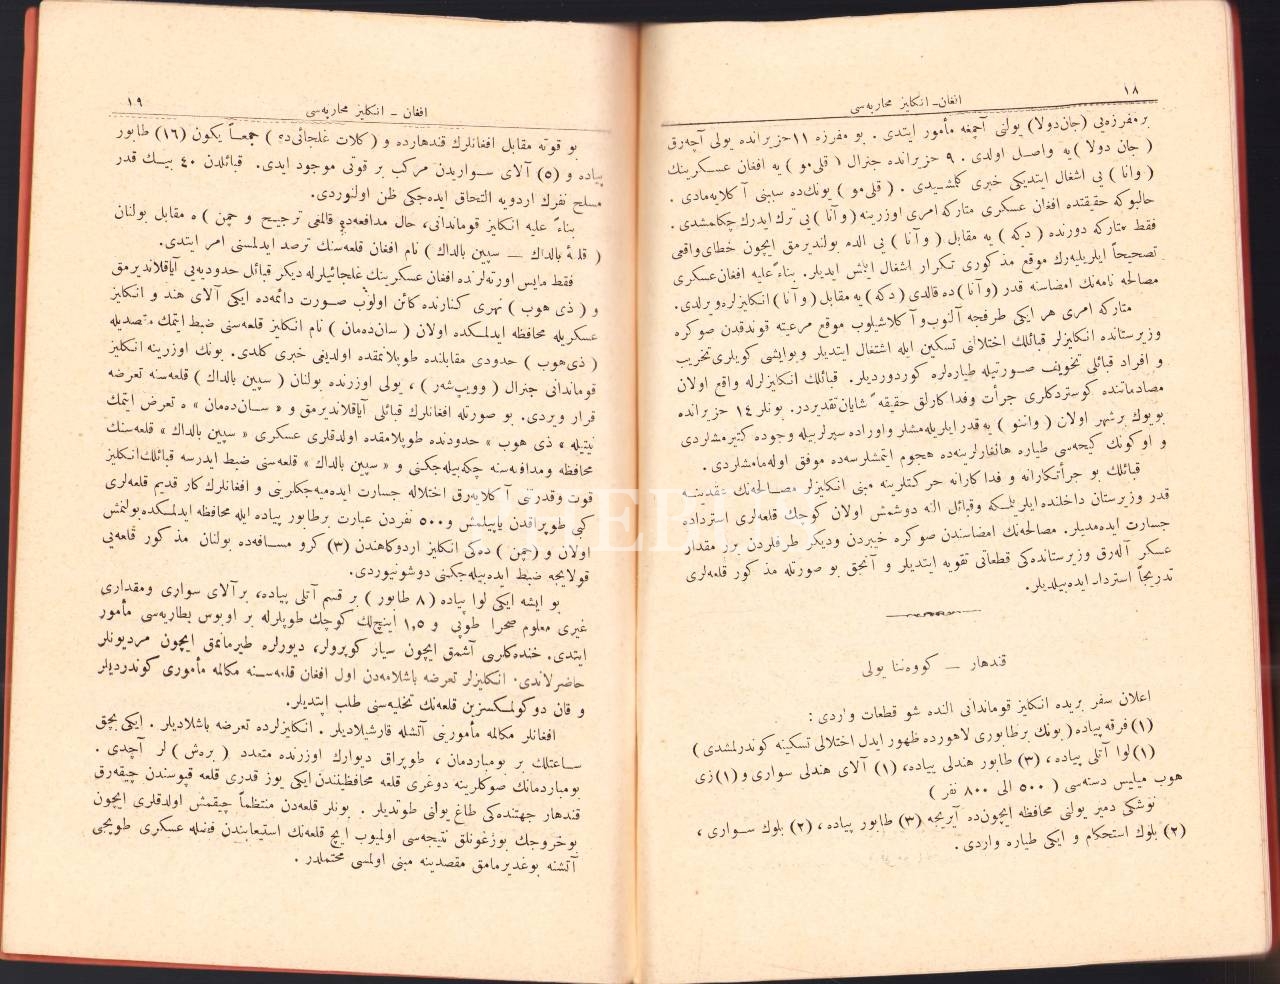 ١٨
افغان ـ انكليز محاربه‌سی
بر مفرزه‌یی (جان‌دولا) یولنی آچمغه مأمور ایتدی . بو مفرزه ١١ حزیرانده یولی آچه‌رق
( جان دولا ) یه واصل اولدی . ٩ حزیرانده جنرال ( قلی‌مو ) یه افغان عسكرینك
( وانا ) یی اشغال ایتدیكی خبری كلمشیدی . ( قلی‌مو ) یونك‌ده سببنی آكلایه‌مادی .
حالبوكه حقیقتده افغان عسكری متاركه امری اوزرینه ( وآنا ) یی ترك ایدرك چكلمشدی .
فقط متاركه دورنده ( دكه ) یه مقابل ( وآنا ) یی الده بولندیرمق ایچون خطای واقعی
تصحیحاً ایلریلیه‌رك موقع مذكوری تكرار اشغال ایتمش ایدیلر. بناءً علیه افغان عسكری
مصالحه نامه‌نك امضاسنه قدر (وآنا) ده قالدی (دكه) یه مقابل (وآنا) انكلیزلره ویرلدی.
متاركه امری هر ایكی طرفجه آلنوب و آكلاشیلوب موقع مرعیته قوندقدن صوكره
وزیرستانده انكلیزلر قبائلك اختلالنی تسكین ایله اشتغال ایتدیلر و بوایشی كویلری تخریب
و افراد قبائلی تخویف صورتیله طیاره‌لره كوردوردیلر. قبائلك انكلیزلرله واقع اولان
مصادماتنده كوستردكلری جرأت وفداكارلق حقیقةً شایان تقدیردر. بونلر ١٤ حزیرانده
بویوك برشهر اولان ( واننو ) یه قدر ایلریله‌مشلر و اوراده سپرلر بیله وجوده كتیرمشلردی
و اوكونك كیجه‌سی طیاره هانغارلرینه‌ده هجوم ایتمشلرسه‌ده موفق اوله‌مامشلردی .
قبائلك بو جرأتكارانه و فداكارانه حركتلرینه مبنی انكلیزلر مصالحه‌نك عقدینه
قدر وزیرستان داخلنده ایلریلمكه وقبائل النه دوشمش اولان كوچك قلعه‌لری استرداده
جسارت ایده‌مدیلر. مصالحه‌نك امضاسندن صوكره خیبردن ودیكر طرفلردن برر مقدار
عسكر آله‌رق وزیرستانده‌كی قطعاتی تقویه ایتدیلر و آنجق بو صورتله مذكور قلعه‌لری
تدریجاً استرداد ایده‌بیلدیلر.
قندهار — كووه‌تتا یولی
اعلان سفر بریده انكلیز قوماندانی النده شو قطعات واردی :
(١) فرقه پیاده ( بونك برطابوری لاهورده ظهور ایدل اختلالی تسكینه كوندرلمشدی )
(١) لوا آتلی پیاده ، (٣) طابور هندلی پیاده، (١) آلای هندلی سواری و (١) زی
هوب میلیس دسته‌سی ( ٥٠٠ الی ٨٠٠ نفر )
نوشكی دمیر یولنی محافظه ایچون‌ده آیریجه (٣) طابور پیاده ، (٢) بلوك سواری ،
(٢) بلوك استحكام و ایكی طیاره واردی .
افغان ـ انكلیز محاربه‌سی
١٩
بو قوته مقابل افغانلرك قندهارده و ( كلات غلجائی‌ده ) جمعاً یكون (١٦) طابور
پیاده و (٥) آلای سواریدن مركب بر قوتی موجود ایدی. قبائلدن ٤٠ بیك قدر
مسلح نفرك اردویه التحاق ایده‌جكی ظن اولنوردی.
بناءً علیه انكلیز قوماندانی، حال مدافعه‌ده قالمغی ترجیح و چمن ) ه مقابل بولنان
( قلعهٔ بالداك — سپین بالداك ) نام افغان قلعه‌سنك ترصد ایدلمسنی امر ایتدی.
فقط مایس اورته‌لرنده افغان عسكرینك غلجائیلرله دیكر قبائل حدودیه‌یی آیاقلاندیرمق
و ( ذی هوب ) نهری كنارنده كائن اولوب صورت دائمه‌ده ایكی آلای هند و انكلیز
عسكریله محافظه ایدلمكده اولان ( سان‌ده‌مان ) نام انكلیز قلعه‌سنی ضبط ایتمك مقصدیله
( ذی‌هوب ) حدودی مقابلنده طوپلانمقده اولدیغی خبری كلدی. بونك اوزرینه انكلیز
قوماندانی جنرال ( وویپ‌شه‌ر ) ، یولی اوزرنده بولنان ( سپین بالداك ) قلعه‌سنه تعرضه
قرار ویردی. بو صورتله افغانلرك قبائلی آیاقلاندیرمق و « سان‌ده‌مان » ه تعرض ایتمك
نیتیله « ذی هوب » حدودنده طوپلامقده اولدقلری عسكری « سپین بالداك » قلعه‌سنك
محافظه ومدافعه‌سنه چكه‌بیله‌جكنی و « سپین بالداك » قلعه‌سنی ضبط ایدرسه قبائلك انكلیز
قوت وقدرتنی آكلایه‌رق اختلاله جسارت ایده‌میه‌جكلرینی و افغانلرك كار قدیم قلعه‌لری
كبی طوپراقدن یاپیلمش و ٥٠٠ نفردن عبارت برطابور پیاده ایله محافظه ایدلمكده بولنمش
اولان و (چمن ) ده‌كی انكلیز اردوكاهندن (٣) كرو مسافه‌ده بولنان مذكور قلعه‌یی
قولایجه ضبط ایده‌بیله‌جكنی دوشونیوردی.
بو ایشه ایكی لوا پیاده ( ٨ طابور ) بر قسم آتلی پیاده، بر آلای سواری ومقداری
غیری معلوم صحرا طوپی و ١,٥ اینچ‌لك كوچك طوپلرله بر اوبوس بطاریه‌سی مأمور
ایتدی. خندكلری آشمق ایچون سیار كوپرولر، دیورلره طیرمانمق ایچون مردیونلر
حاضرلاندی. انكلیزلر تعرضه باشلامه‌دن اول افغان قلعه‌سنه مكالمه مأموری كوندردیلر
و قان دوكولمكسزین قلعه‌نك تخلیه‌سنی طلب ایتدیلر.
افغانلر مكالمه مأمورینی آتشله قارشیلادیلر . انكلیزلرده تعرضه باشلادیلر . ایكی بچق
ساعتلك بر بومباردمان ، طوپراق دیوارك اوزرنده متعدد ( بره‌ش ) لر آچدی .
بومباردمانك صوكلرینه دوغری قلعه محافظیندن ایكی یوز قدری قلعه قپوسندن چیقه‌رق
قندهار جهتنده‌كی طاغ یولنی طوتدیلر . بونلر قلعه‌دن منتظماً چیقمش اولدقلری ایچون
بوخروجك بوزغونلق نتیجه‌سی اولمیوب ایچ قلعه‌نك استیعابندن فضله عسكری طوپجی
آتشنه بوغدیرمامق مقصدینه مبنی اولمسی محتملدر .
PHEBUS